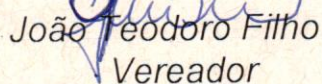 João Teodoro Filho
Vereador